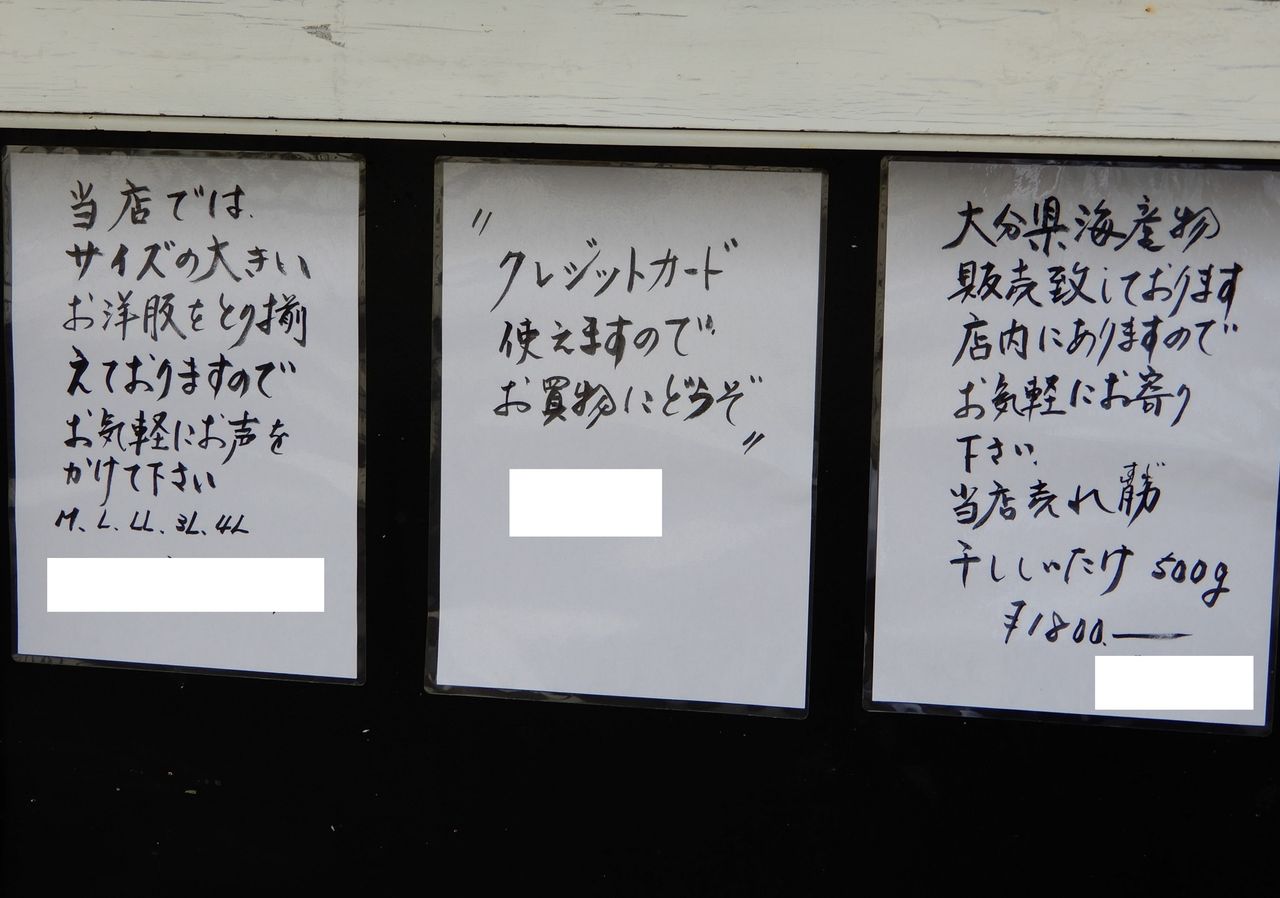 当店では
サイズの大きい
お洋服をとり揃
えておりますので
お気軽にお声を
かけて下さい
M. L. LL. 3L. 4L
〃
クレジットカード
使えますので
お買物にどうぞ
〃
大分県海産物
販売致しております
店内にありますので
お気軽にお寄り
下さい
当店売れ
干ししいたけ 500g
¥1800.―